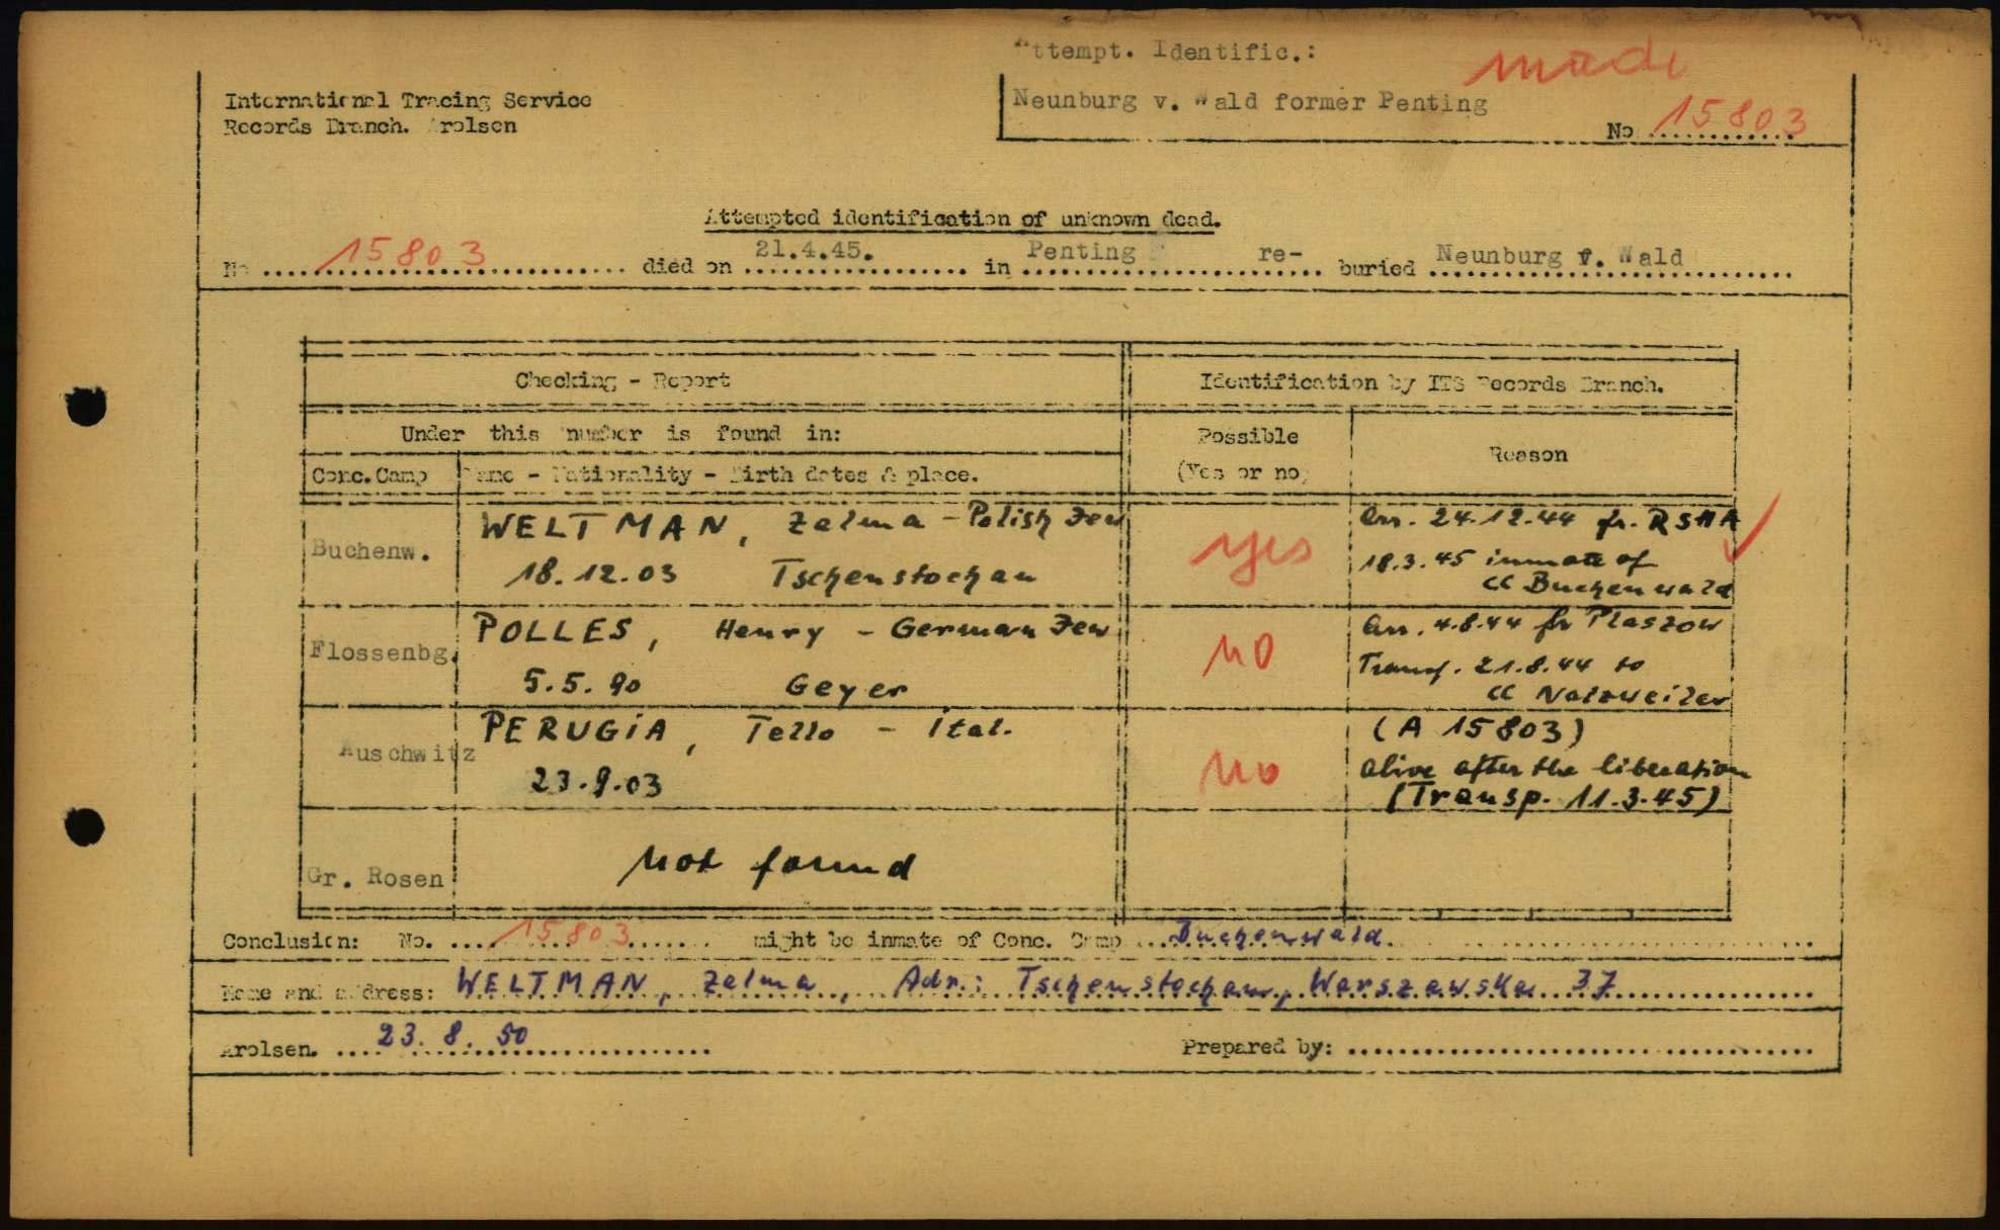 Attempt. Identific.: made
International Tracing Service
Records Branch. Arolsen
Neunburg v. Wald former Penting
No 15803
Attempted identification of unknown dead.
No 15803 died on 21.4.45. in Penting re- buried Neunburg v. Wald
Checking - Report
Identification by ITS Records Branch.
Under this number is found in:
Possible
(Yes or no)
Reason
Conc. Camp
Name - Nationality - Birth dates & place.
Buchenw.
WELTMAN, Zelma - Polish Jew
18.12.03 Tschenstochau
yes
Arr. 24.12.44 fr. RSHA
18.3.45 inmate of
CC Buchenwald
Flossenbg.
POLLES, Henry - German Jew
5.5.90 Geyer
no
Arr. 4.8.44 fr Plaszow
Transf. 21.8.44 to
CC Natzweiler
Auschwitz
PERUGIA, Tello - Ital.
23.9.03
no
(A 15803)
alive after the liberation
(Transp. 11.3.45)
Gr. Rosen
not found
Conclusion: No. 15803 might be inmate of Conc. Camp Buchenwald
Name and address: WELTMAN, Zelma, Adr.: Tschenstochau, Warszawska 37
Arolsen. 23. 8. 50
Prepared by: